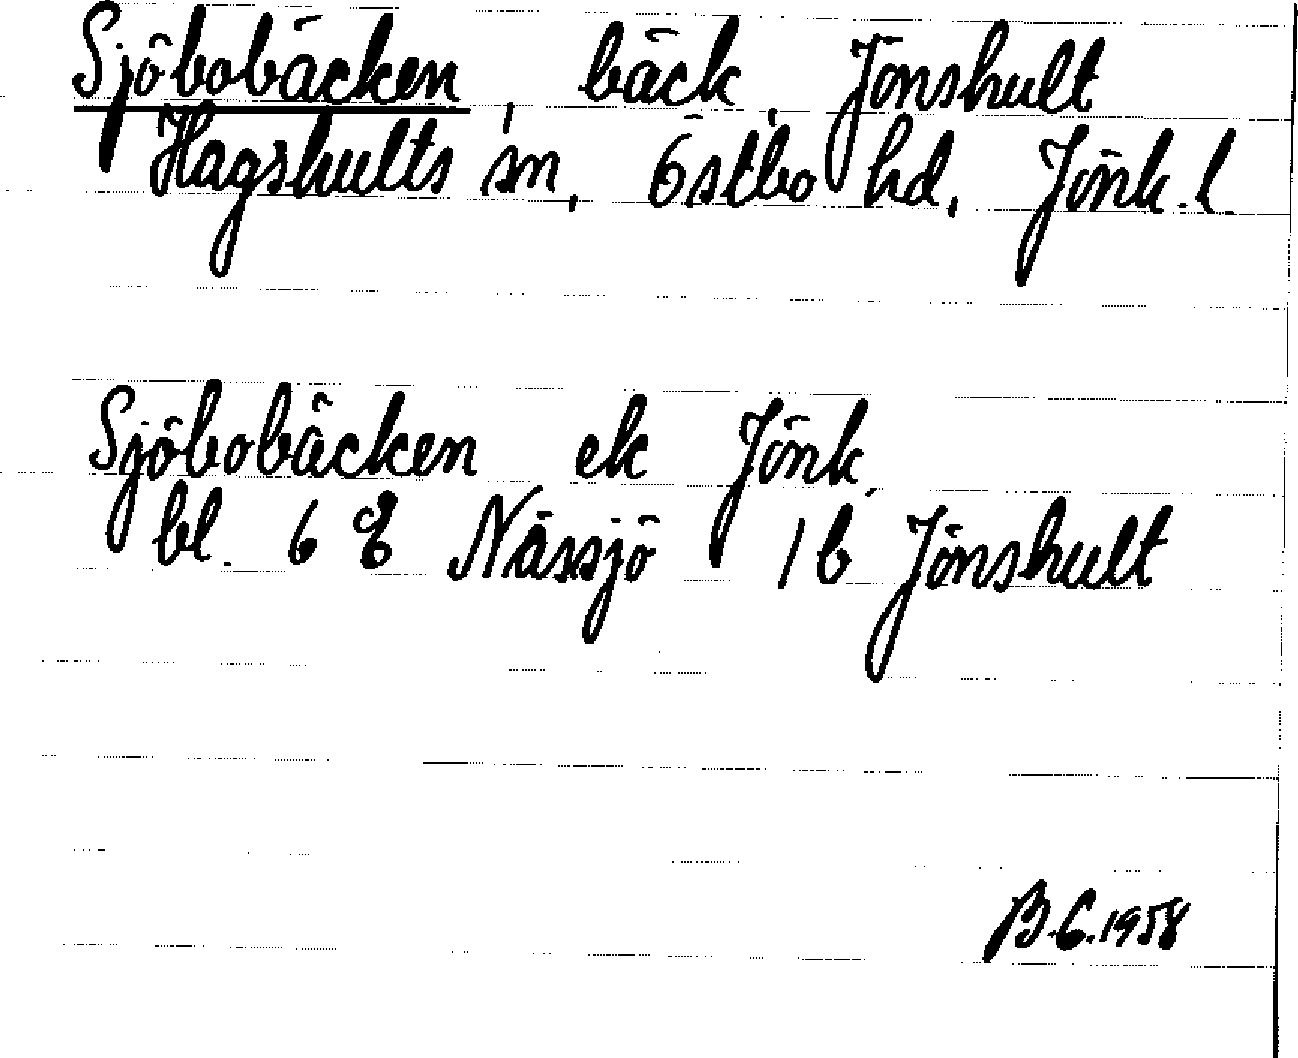 Sjöbobäcken, bäck, Jönshult
Hagshults sn, Östbo hd, Jönk. l.
Sjöbobäcken ek Jönk.
bl. 6 E Nässjö 1 b Jönshult
B. G. 1958